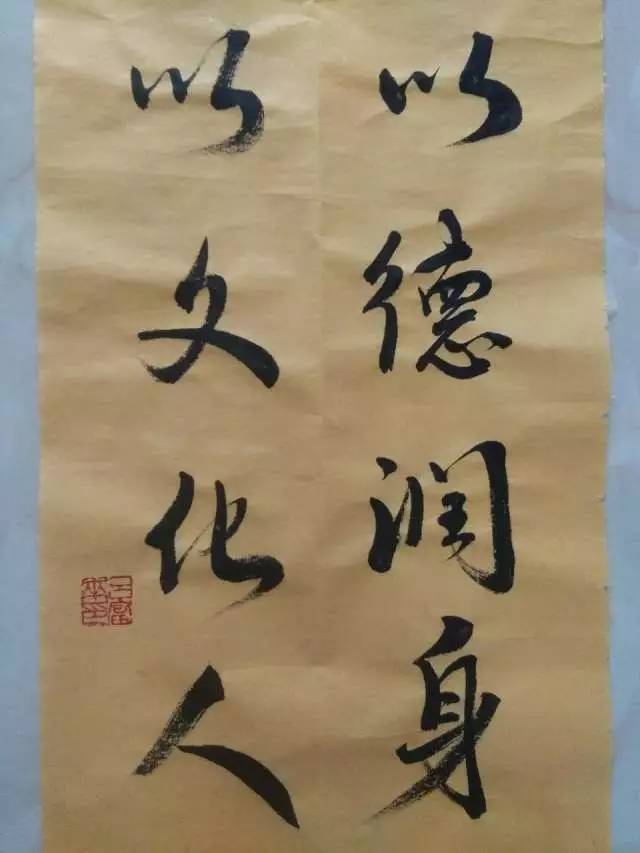 以德润身
以文化人